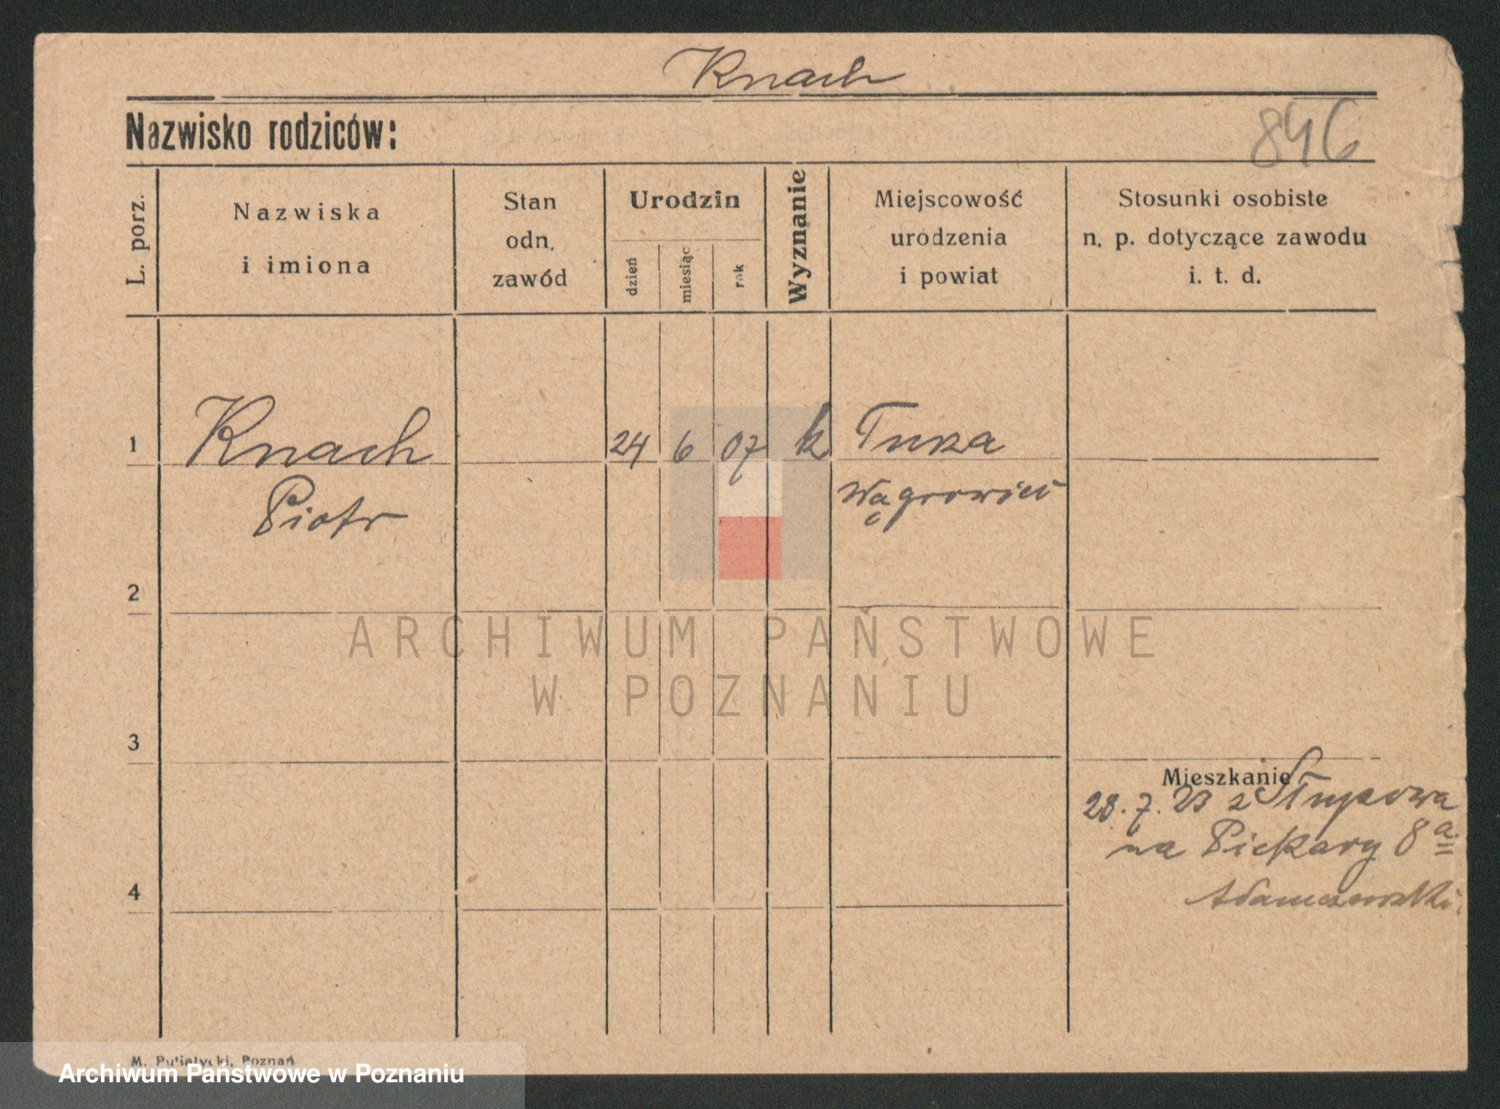 Knach
Nazwisko rodziców:
846
L. porz.
Nazwiska
i imiona
Stan
odn.
zawód
Urodzin
dzień
miesiąc
rok
Wyznanie
Miejscowość
urodzenia
i powiat
Stosunki osobiste
n. p. dotyczące zawodu
i. t. d.
1
Knach
24 6 07 k
Piotr
Wągrowiec
2
ARCHIWUM PAŃSTWOWE
W POZNANIU
3
Mieszkanie
28. 7. z
na Piekary 8a
Adamczewski
4
M. Putiatycki, Poznań
Archiwum Państwowe w Poznaniu